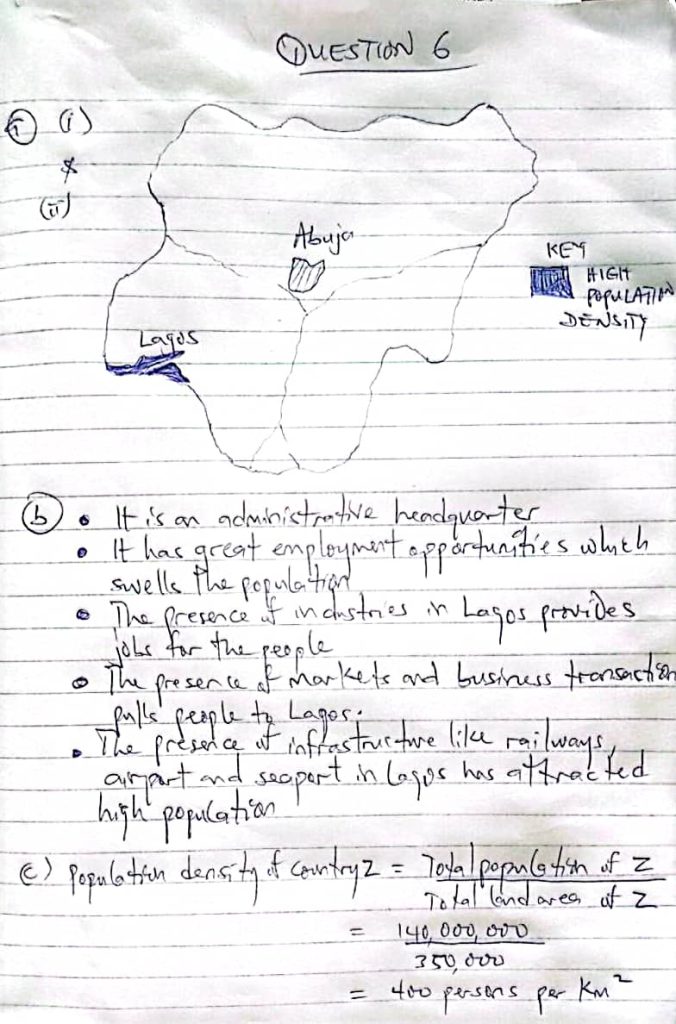 QUESTION 6
(i)
&
(ii)
Abuja
KEY
HIGH
POPULATION
DENSITY
Lagos
(b) • It is an administrative headquarter
• It has great employment opportunities which
swells the population
• The presence of industries in Lagos provides
jobs for the people
• The presence of markets and business transaction
pulls people to Lagos.
• The presence of infrastructure like railways,
airport and seaport in Lagos has attracted
high population
c) Population density of Country Z = Total population of Z
Total land area of Z
= 140,000,000
350,000
= 400 persons per Km²